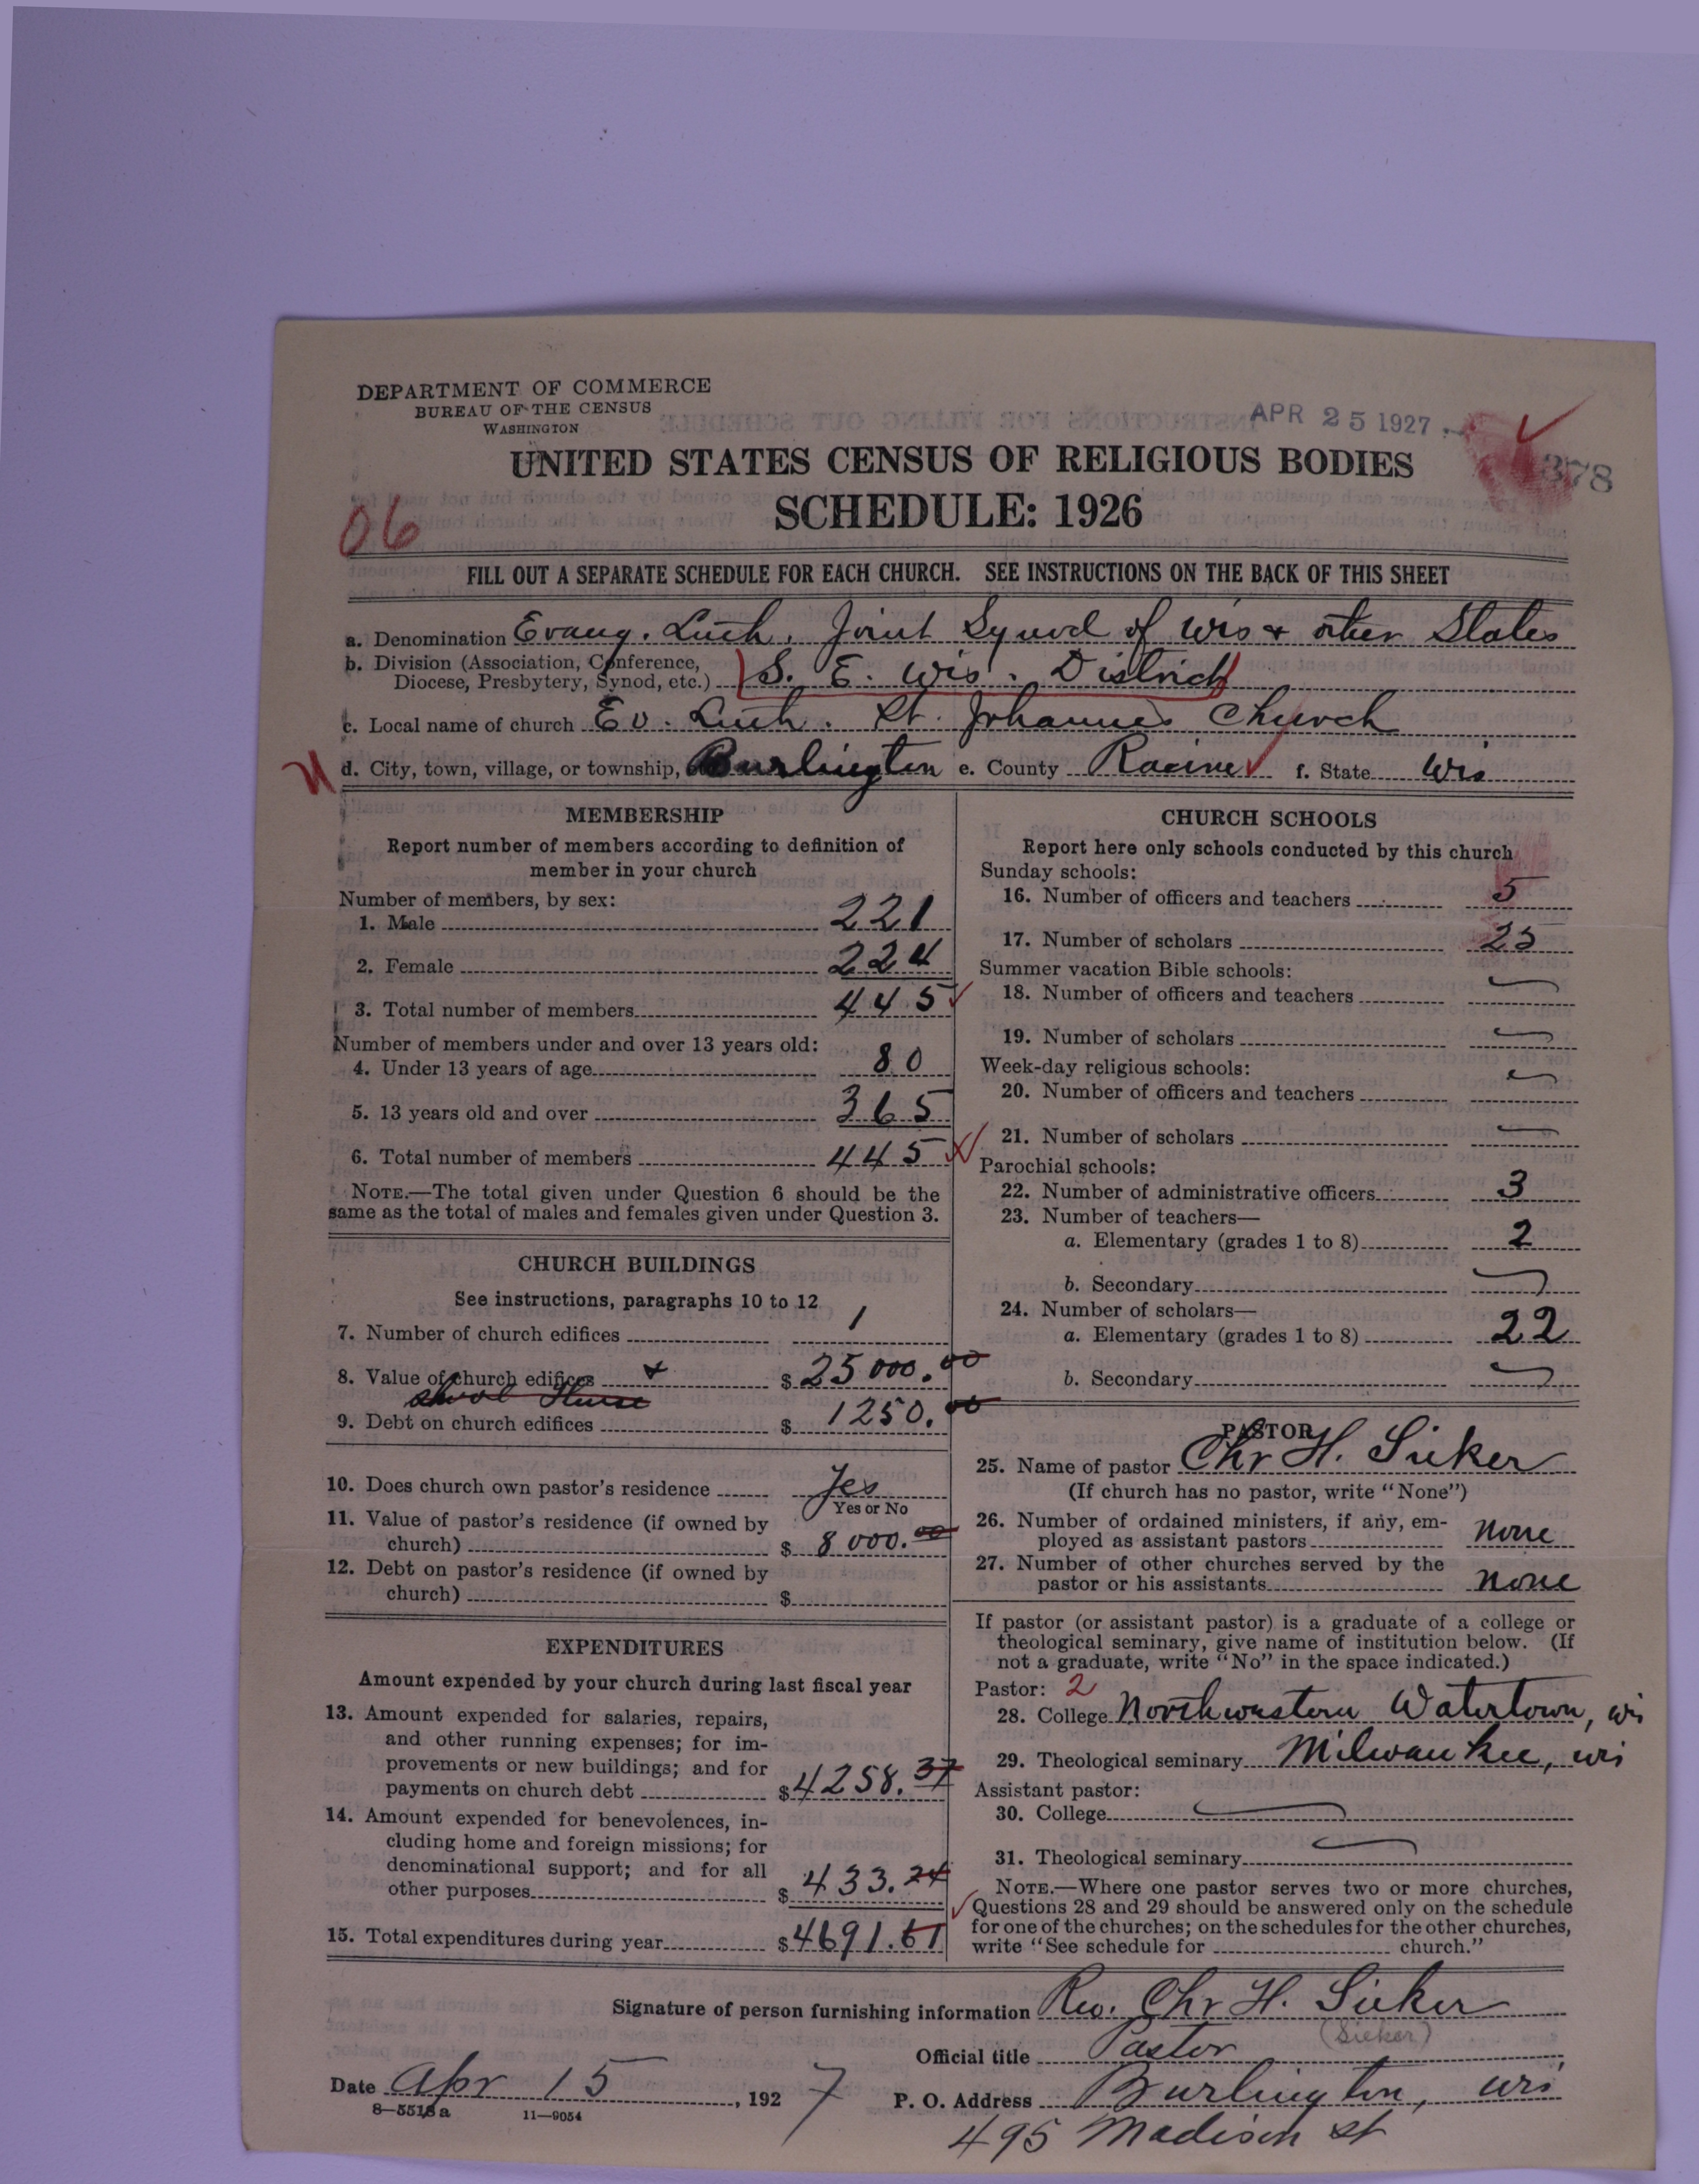 DEPARTMENT OF COMMERCE
BUREAU OF THE CENSUS
WASHINGTON
APR 25 1927
378
UNITED STATES CENSUS OF RELIGIOUS BODIES
SCHEDULE: 1926
06
FILL OUT A SEPARATE SCHEDULE FOR EACH CHURCH. SEE INSTRUCTIONS ON THE BACK OF THIS SHEET
a. Denomination Evang. Luth. Joint Synod of Wis & other States
b. Division (Association, Conference,
Diocese, Presbytery, Synod, etc.) S. E. Wis. District
c. Local name of church Ev. Luth. St. Johannes Church
d. City, town, village, or township, Burlington e. County Racine f. State Wis
MEMBERSHIP
Report number of members according to definition of
member in your church
Number of members, by sex:
1. Male 221
2. Female 224
3. Total number of members 445
Number of members under and over 13 years old:
4. Under 13 years of age 80
5. 13 years old and over 365
6. Total number of members 445
NOTE.—The total given under Question 6 should be the
same as the total of males and females given under Question 3.
CHURCH BUILDINGS
See instructions, paragraphs 10 to 12
7. Number of church edifices 1
8. Value of church edifices & $ 25000.00
school House
9. Debt on church edifices $ 1250.00
10. Does church own pastor's residence Yes
Yes or No
11. Value of pastor's residence (if owned by
church) $ 8000.00
12. Debt on pastor's residence (if owned by
church) $
EXPENDITURES
Amount expended by your church during last fiscal year
13. Amount expended for salaries, repairs,
and other running expenses; for im-
provements or new buildings; and for
payments on church debt $ 4258.37
14. Amount expended for benevolences, in-
cluding home and foreign missions; for
denominational support; and for all
other purposes $ 433.24
15. Total expenditures during year $ 4691.61
CHURCH SCHOOLS
Report here only schools conducted by this church
Sunday schools:
16. Number of officers and teachers 5
17. Number of scholars 25
Summer vacation Bible schools:
18. Number of officers and teachers
19. Number of scholars
Week-day religious schools:
20. Number of officers and teachers
21. Number of scholars
Parochial schools:
22. Number of administrative officers 3
23. Number of teachers—
a. Elementary (grades 1 to 8) 2
b. Secondary
24. Number of scholars—
a. Elementary (grades 1 to 8) 22
b. Secondary
PASTOR
25. Name of pastor Chr H. Sieker
(If church has no pastor, write "None")
26. Number of ordained ministers, if any, em-
ployed as assistant pastors none
27. Number of other churches served by the
pastor or his assistants none
If pastor (or assistant pastor) is a graduate of a college or
theological seminary, give name of institution below. (If
not a graduate, write "No" in the space indicated.)
Pastor: 2
28. College Northwestern Watertown, Wis
29. Theological seminary Milwaukee, Wis
Assistant pastor:
30. College
31. Theological seminary
NOTE.—Where one pastor serves two or more churches,
Questions 28 and 29 should be answered only on the schedule
for one of the churches; on the schedules for the other churches,
write "See schedule for church."
Signature of person furnishing information Rev. Chr H. Sieker
(Sieker)
Official title Pastor
Date Apr 15, 1927 P. O. Address Burlington, Wis
8—5518a 11—9054
495 Madison St